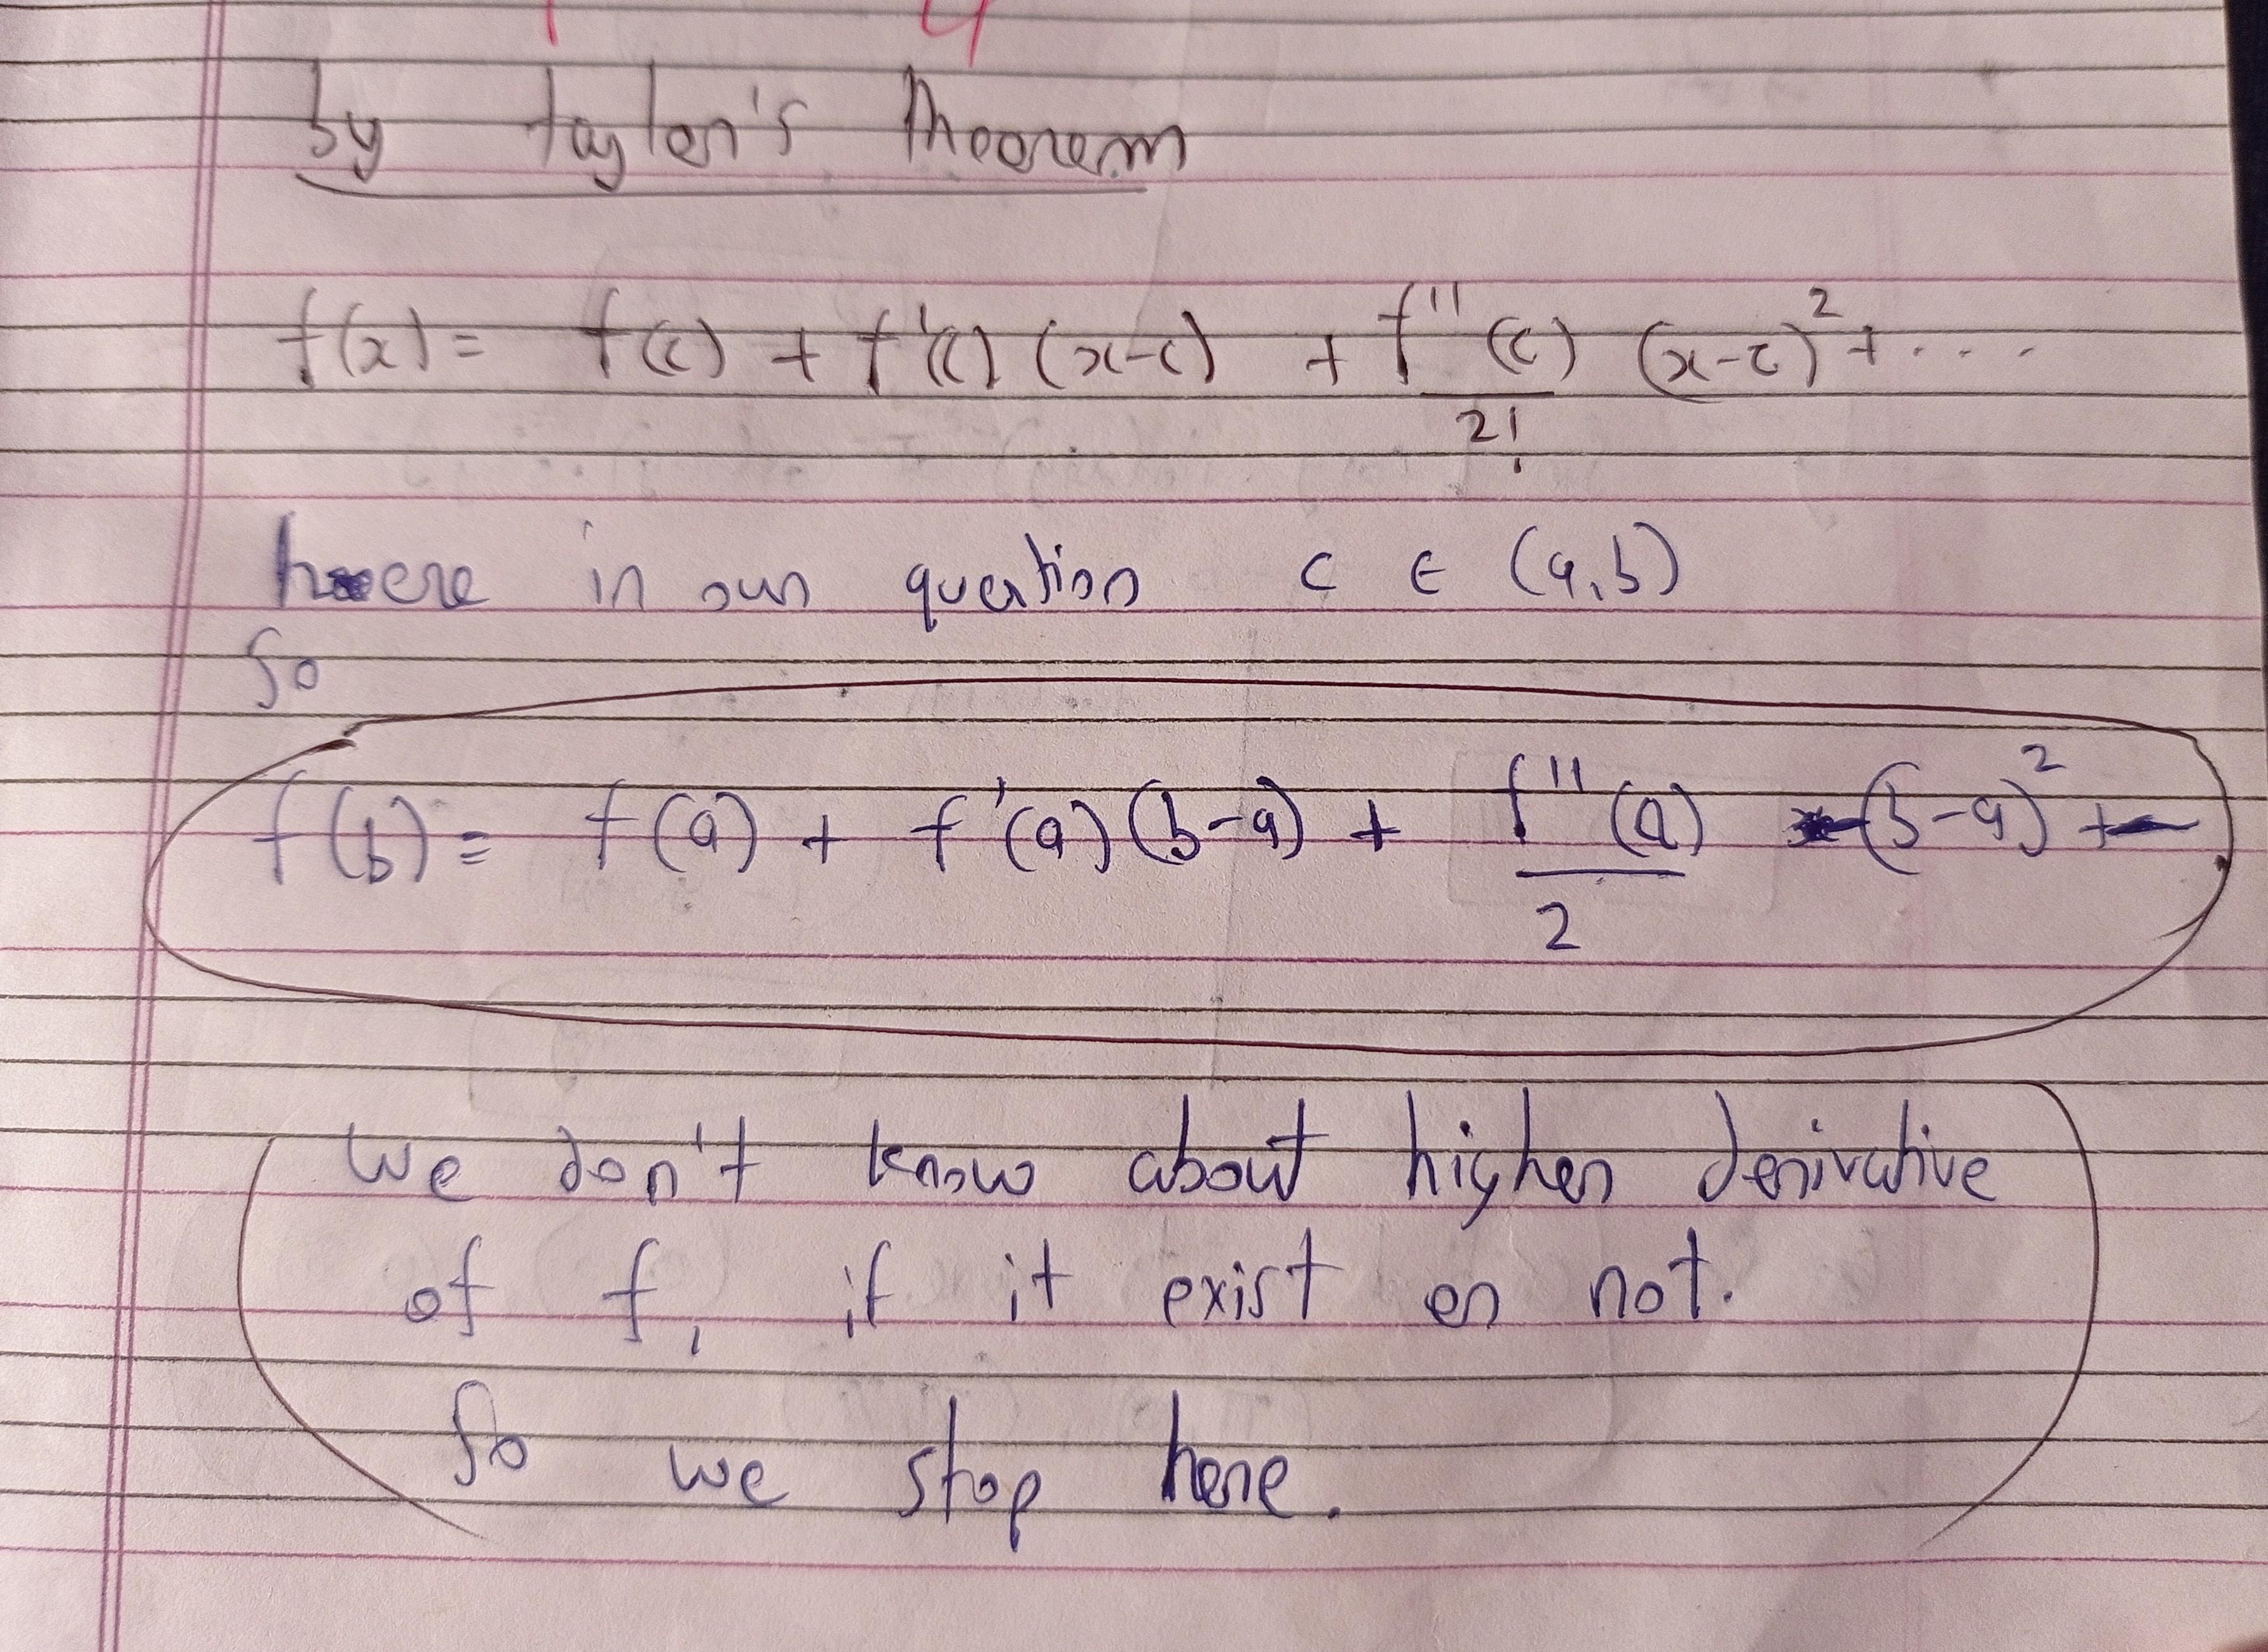 by Taylor's Theorem
f(x) = f(c) + f'(c) (x-c) + f''(c)/2! (x-c)² + ....
here in our question c ∈ (a,b)
So
f(b) = f(a) + f'(a) (b-a) + f''(a)/2 (b-a)² +
We don't know about higher derivative
of f, if it exist or not.
So we stop here.